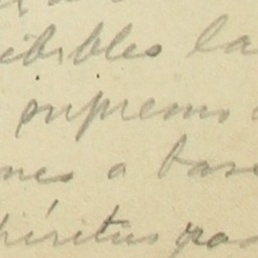 ibibles la
supremo
nes a bas
píritus pas